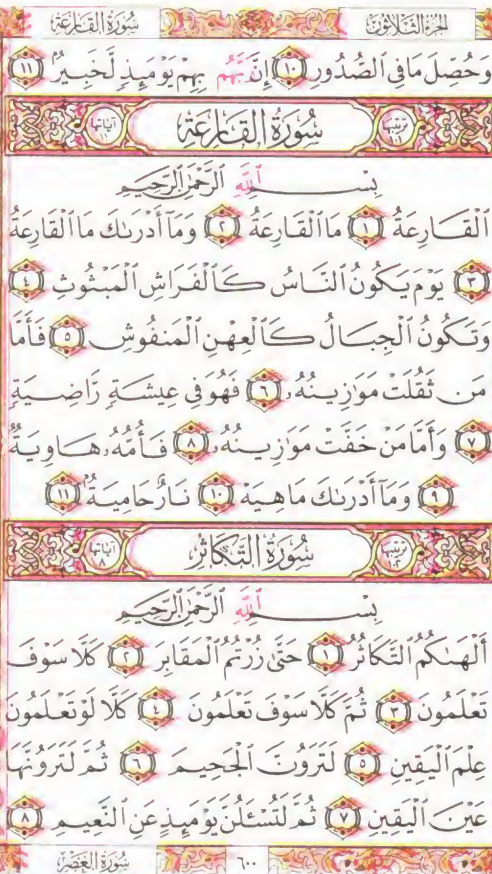 سُورَةُ القَارِعَةِ الجُزْءُ الثَّلَاثُونَ
وَحُصِّلَ مَا فِي ٱلصُّدُورِ ١٠ إِنَّ رَبَّهُم بِهِمْ يَوْمَئِذٍ لَّخَبِيرٌ ١١
ترتيبها ١٠١ سُورَةُ القَارِعَةِ آياتها ١١
بِسْمِ ٱللَّهِ ٱلرَّحْمَٰنِ ٱلرَّحِيمِ
ٱلْقَارِعَةُ ١ مَا ٱلْقَارِعَةُ ٢ وَمَآ أَدْرَىٰكَ مَا ٱلْقَارِعَةُ
٣ يَوْمَ يَكُونُ ٱلنَّاسُ كَٱلْفَرَاشِ ٱلْمَبْثُوثِ ٤
وَتَكُونُ ٱلْجِبَالُ كَٱلْعِهْنِ ٱلْمَنفُوشِ ٥ فَأَمَّا
مَن ثَقُلَتْ مَوَٰزِينُهُۥ ٦ فَهُوَ فِي عِيشَةٍ رَّاضِيَةٍ
٧ وَأَمَّا مَنْ خَفَّتْ مَوَٰزِينُهُۥ ٨ فَأُمُّهُۥ هَاوِيَةٌ
٩ وَمَآ أَدْرَىٰكَ مَا هِيَهْ ١٠ نَارٌ حَامِيَةٌۢ ١١
ترتيبها ١٠٢ سُورَةُ التَّكَاثُرِ آياتها ٨
بِسْمِ ٱللَّهِ ٱلرَّحْمَٰنِ ٱلرَّحِيمِ
أَلْهَىٰكُمُ ٱلتَّكَاثُرُ ١ حَتَّىٰ زُرْتُمُ ٱلْمَقَابِرَ ٢ كَلَّا سَوْفَ
تَعْلَمُونَ ٣ ثُمَّ كَلَّا سَوْفَ تَعْلَمُونَ ٤ كَلَّا لَوْ تَعْلَمُونَ
عِلْمَ ٱلْيَقِينِ ٥ لَتَرَوُنَّ ٱلْجَحِيمَ ٦ ثُمَّ لَتَرَوُنَّهَا
عَيْنَ ٱلْيَقِينِ ٧ ثُمَّ لَتُسْـَٔلُنَّ يَوْمَئِذٍ عَنِ ٱلنَّعِيمِ ٨
٦٠٠ سُورَةُ العَصْرِ